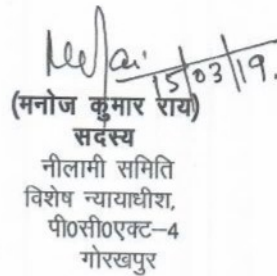 15/03/19.
(मनोज कुमार राय)
सदस्य
नीलामी समिति
विशेष न्यायाधीश,
पी0सी0एक्ट–4
गोरखपुर